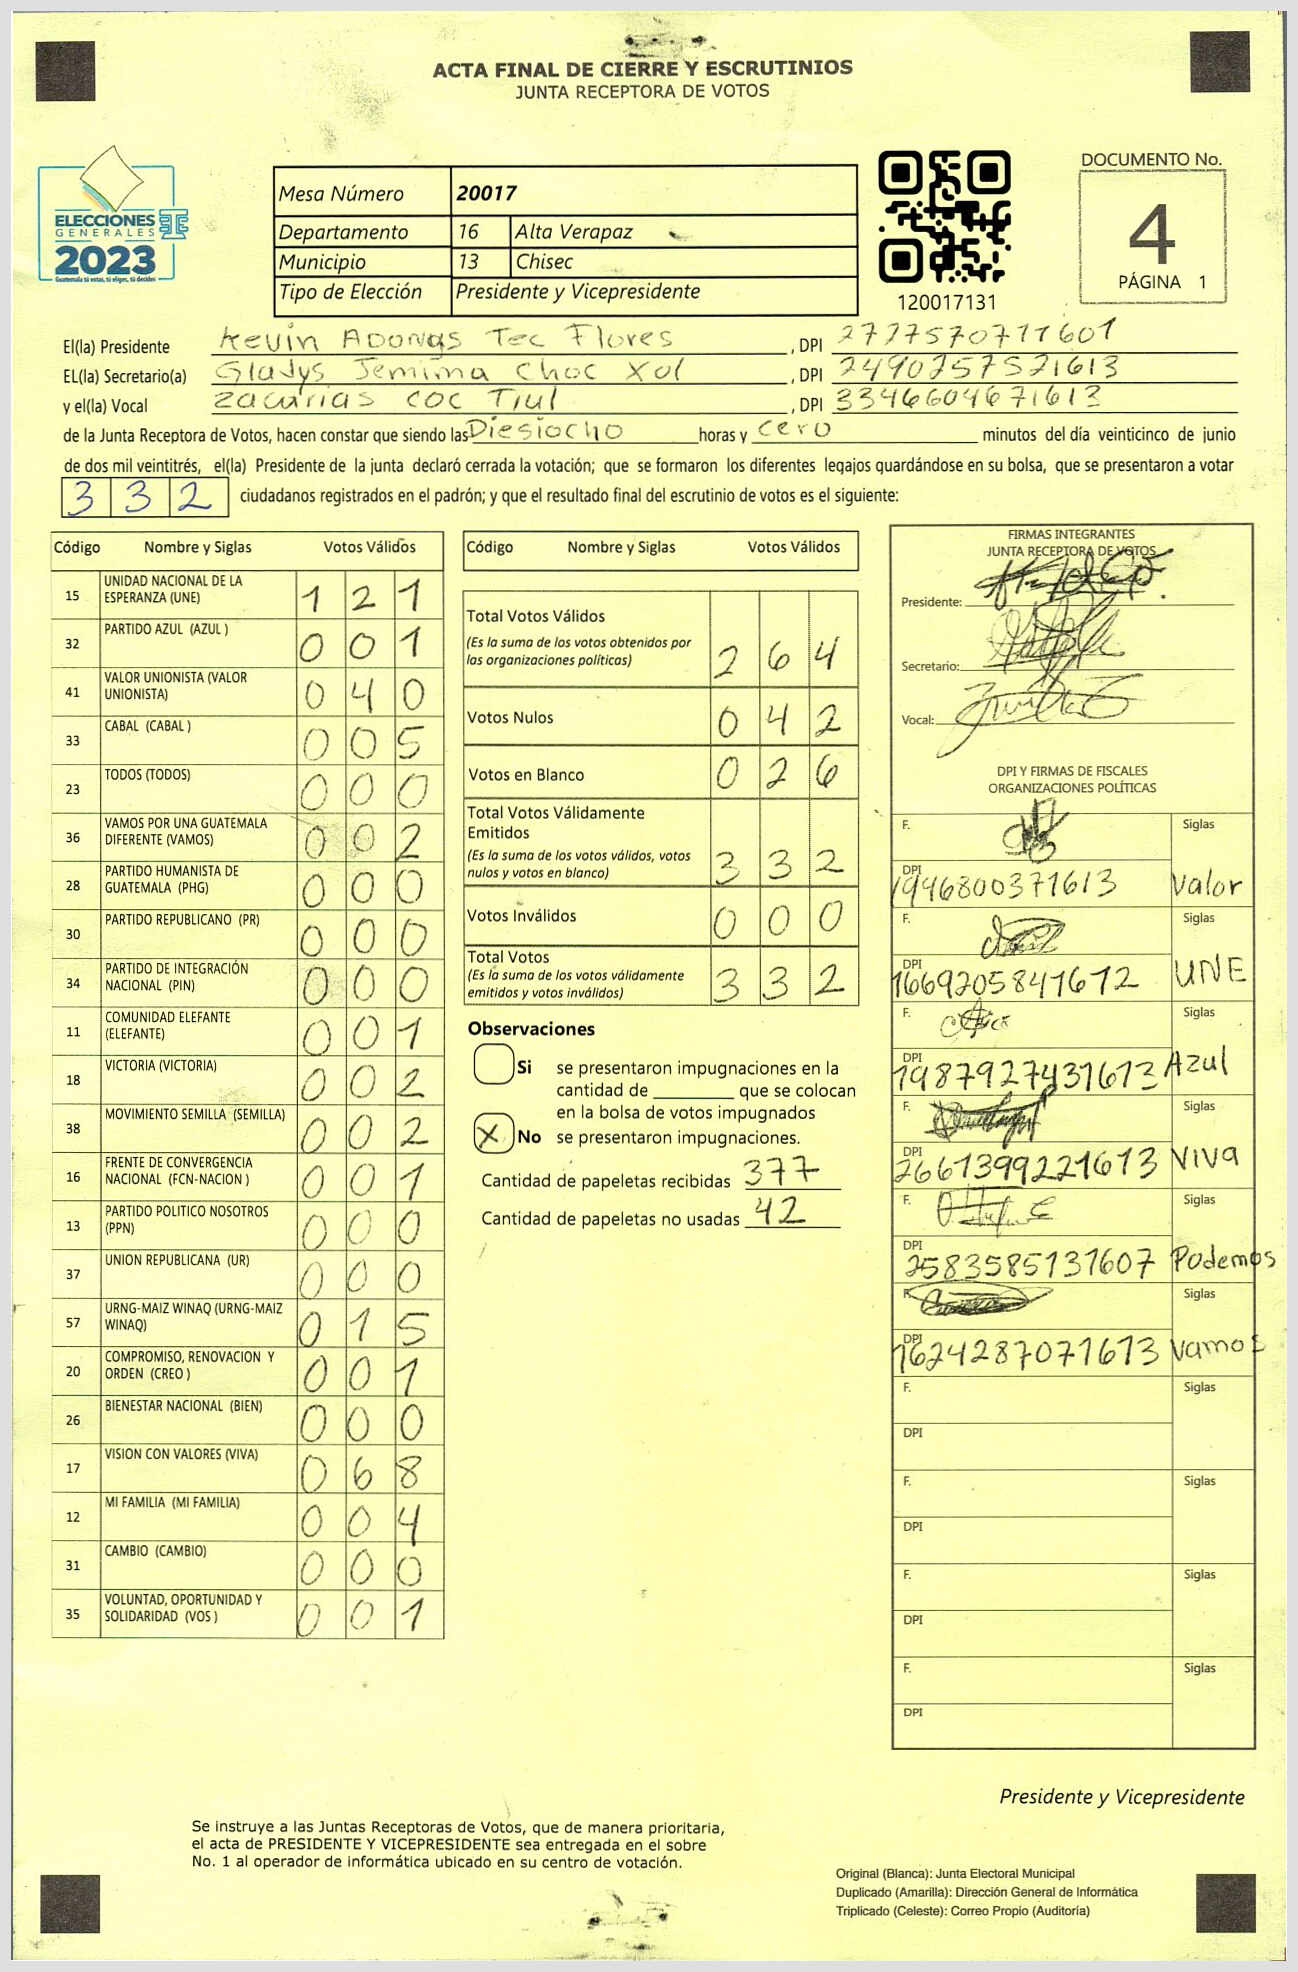 ACTA FINAL DE CIERRE Y ESCRUTINIOS
JUNTA RECEPTORA DE VOTOS
ELECCIONES
GENERALES
2023
Guatemala tú votas, tú eliges, tú decides
Mesa Número 20017
Departamento 16 Alta Verapaz
Municipio 13 Chisec
Tipo de Elección Presidente y Vicepresidente
120017131
DOCUMENTO No.
4
PÁGINA 1
El(la) Presidente Kevin Adonys Tec Flores, DPI 2777570711601
EL(la) Secretario(a) Gladys Jemima Choc Xol, DPI 2490257521613
y el(la) Vocal Zacarias Coc Tiul, DPI 3346604671613
de la Junta Receptora de Votos, hacen constar que siendo las Diesiocho horas y cero minutos del día veinticinco de junio
de dos mil veintitrés, el(la) Presidente de la junta declaró cerrada la votación; que se formaron los diferentes legajos guardándose en su bolsa, que se presentaron a votar
332 ciudadanos registrados en el padrón; y que el resultado final del escrutinio de votos es el siguiente:
Código Nombre y Siglas Votos Válidos
15 UNIDAD NACIONAL DE LA ESPERANZA (UNE) 121
32 PARTIDO AZUL (AZUL ) 001
41 VALOR UNIONISTA (VALOR UNIONISTA) 040
33 CABAL (CABAL ) 005
23 TODOS (TODOS) 000
36 VAMOS POR UNA GUATEMALA DIFERENTE (VAMOS) 002
28 PARTIDO HUMANISTA DE GUATEMALA (PHG) 000
30 PARTIDO REPUBLICANO (PR) 000
34 PARTIDO DE INTEGRACIÓN NACIONAL (PIN) 000
11 COMUNIDAD ELEFANTE (ELEFANTE) 001
18 VICTORIA (VICTORIA) 002
38 MOVIMIENTO SEMILLA (SEMILLA) 002
16 FRENTE DE CONVERGENCIA NACIONAL (FCN-NACION ) 001
13 PARTIDO POLITICO NOSOTROS (PPN) 000
37 UNION REPUBLICANA (UR) 000
57 URNG-MAIZ WINAQ (URNG-MAIZ WINAQ) 015
20 COMPROMISO, RENOVACION Y ORDEN (CREO ) 001
26 BIENESTAR NACIONAL (BIEN) 000
17 VISION CON VALORES (VIVA) 068
12 MI FAMILIA (MI FAMILIA) 004
31 CAMBIO (CAMBIO) 000
35 VOLUNTAD, OPORTUNIDAD Y SOLIDARIDAD (VOS ) 001
Código Nombre y Siglas Votos Válidos
Total Votos Válidos
(Es la suma de los votos obtenidos por
las organizaciones políticas) 264
Votos Nulos 042
Votos en Blanco 026
Total Votos Válidamente
Emitidos
(Es la suma de los votos válidos, votos
nulos y votos en blanco) 332
Votos Inválidos 000
Total Votos
(Es la suma de los votos válidamente
emitidos y votos inválidos) 332
Observaciones
Si se presentaron impugnaciones en la
cantidad de ________ que se colocan
en la bolsa de votos impugnados
X No se presentaron impugnaciones.
Cantidad de papeletas recibidas 377
Cantidad de papeletas no usadas 42
FIRMAS INTEGRANTES
JUNTA RECEPTORA DE VOTOS
Presidente:
Secretario:
Vocal:
DPI Y FIRMAS DE FISCALES
ORGANIZACIONES POLÍTICAS
F. Siglas
DPI 1946800371613 Valor
F. Siglas
DPI 1669205841612 UNE
F. Siglas
DPI 1987927431613 Azul
F. Siglas
DPI 2661399221613 VIVA
F. Siglas
DPI 2583585131607 Podemos
F. Siglas
DPI 1624287071613 Vamos
F. Siglas
DPI
F. Siglas
DPI
F. Siglas
DPI
F. Siglas
DPI
Presidente y Vicepresidente
Se instruye a las Juntas Receptoras de Votos, que de manera prioritaria,
el acta de PRESIDENTE Y VICEPRESIDENTE sea entregada en el sobre
No. 1 al operador de informática ubicado en su centro de votación.
Original (Blanca): Junta Electoral Municipal
Duplicado (Amarilla): Dirección General de Informática
Triplicado (Celeste): Correo Propio (Auditoría)